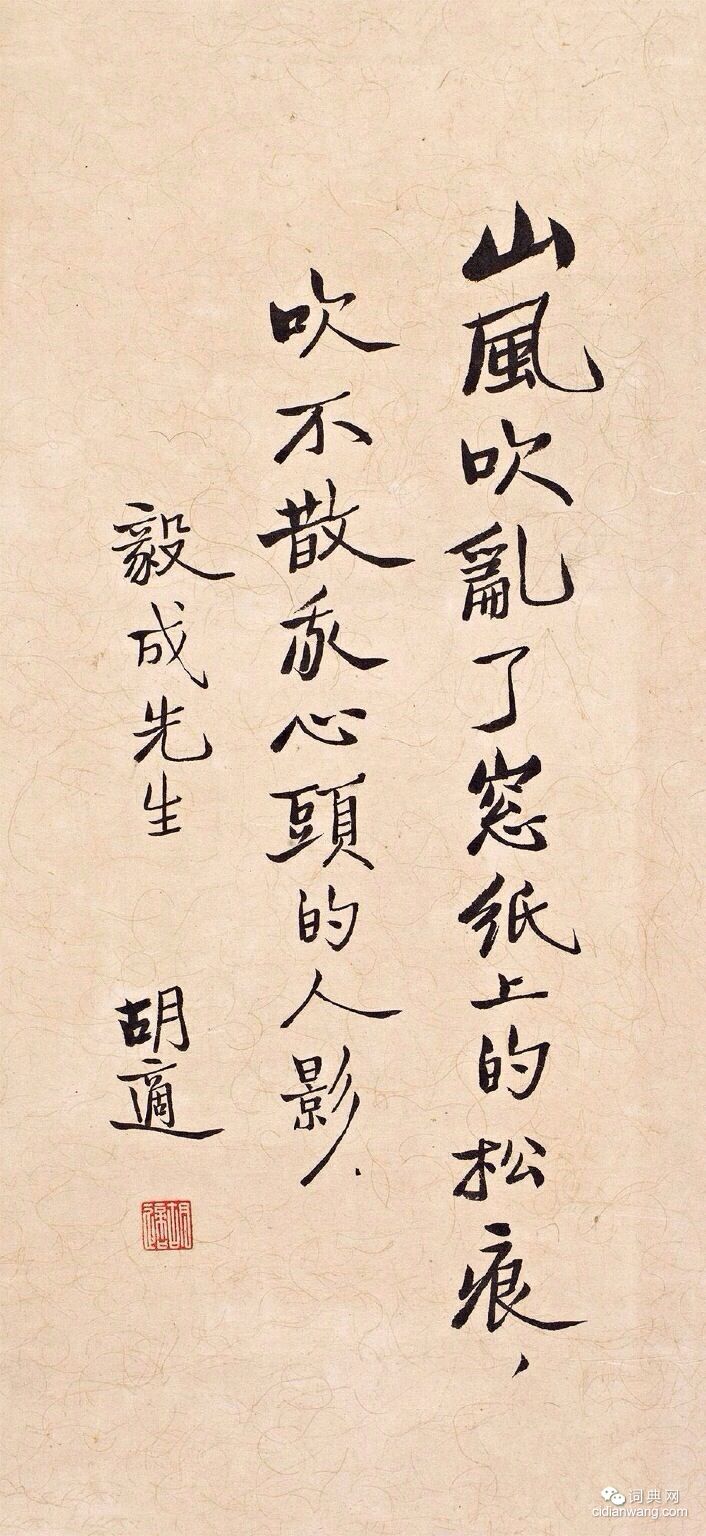 山風吹亂了窓纸上的松痕，
吹不散我心頭的人影．
毅成先生
胡適
胡適
词典网
cidianwang.com